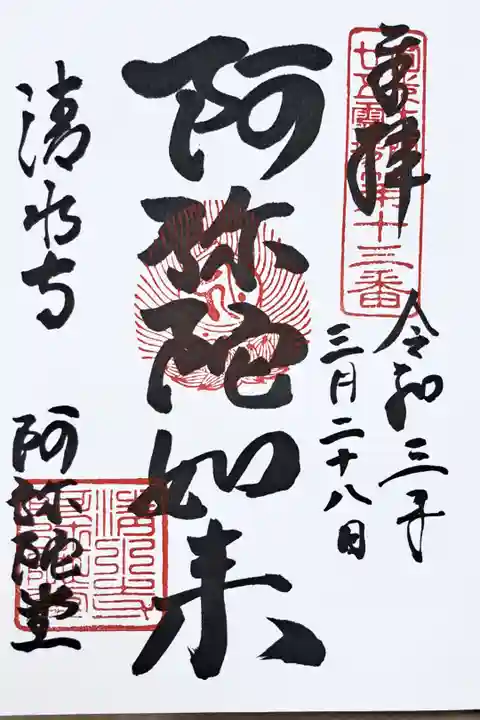 奉拝
令和三年
三月二十八日
阿弥陀如来
清水寺
阿弥陀堂
第十三番